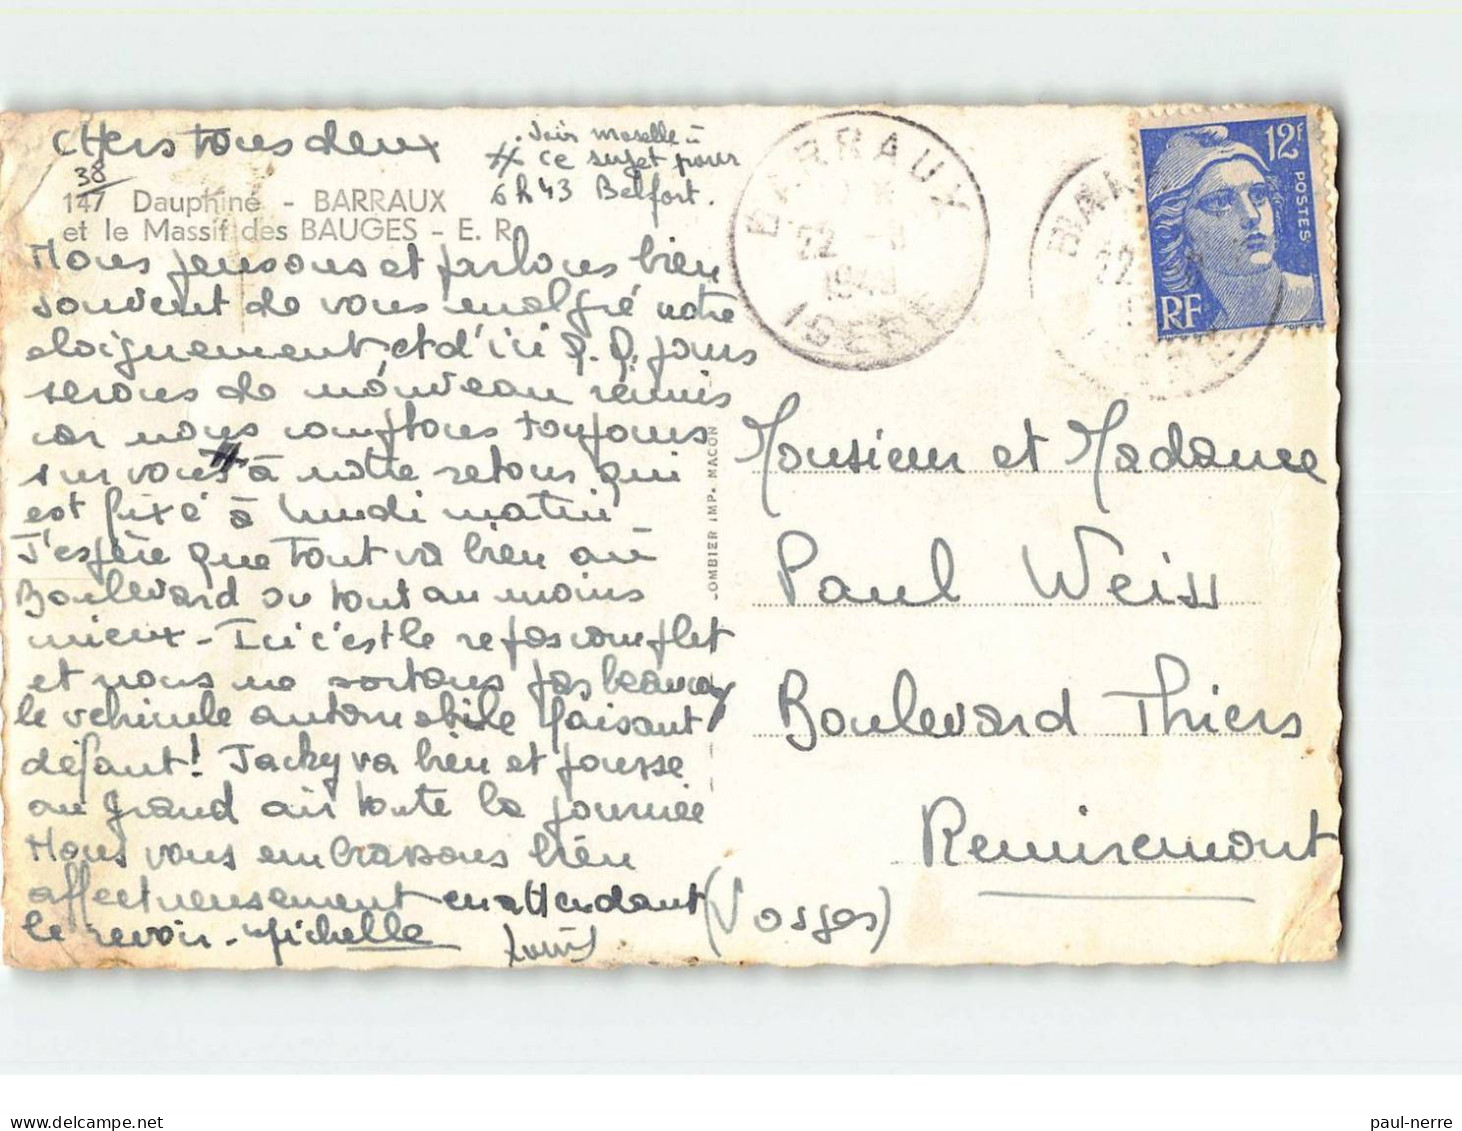 Chers tous deux
Voir Moselle à
# ce sujet pour
6h43 Belfort.
38
147 Dauphiné - BARRAUX
et le Massif des BAUGES - E. R.
Nous pensons et parlons bien
souvent de vous malgré notre
eloignement, et d'ici q.q. jours
serons de nouveau réunis
car nous comptons toujours
sur vous # à notre retour qui
est fixé à lundi matin.
J'espère que tout va bien au
Boulevard ou tout au moins
mieux - Ici c'est le repos complet
et nous ne sortons pas beaucoup
le véhicule automobile faisant
défaut! Jacky va bien et pousse
au grand air toute la journée
Nous vous embrassons bien
affectueusement en attendant
le revoir - Michelle
Louis
COMBIER IMP. MACON
BARRAUX
22
1949
ISERE
12F
POSTES
RF
Monsieur et Madame
Paul Weiss
Boulevard Thiers
Remiremont
(Vosges)
delcampe.net
paul-nerre